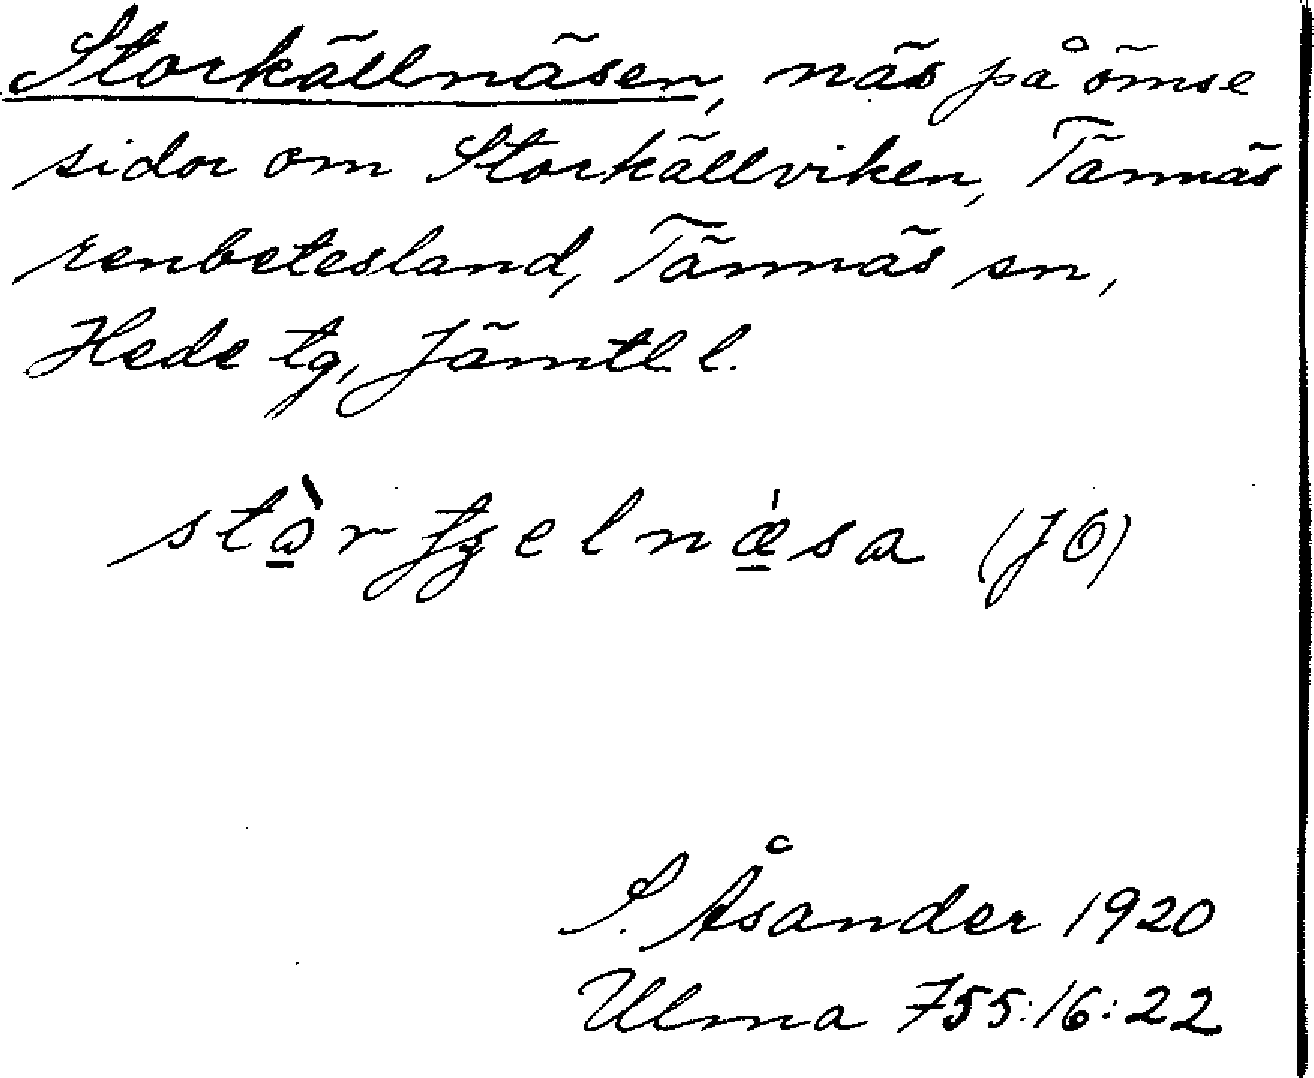 Storkällnäsen, näs på ömse
sidor om Storkällviken, Tännäs
renbetesland, Tännäs sn,
Hede tg, Jämtl. l.
stò̠r tʃelnæ̠̍sa (JÖ)
S. Åsander 1920
Ulma 755:16:22